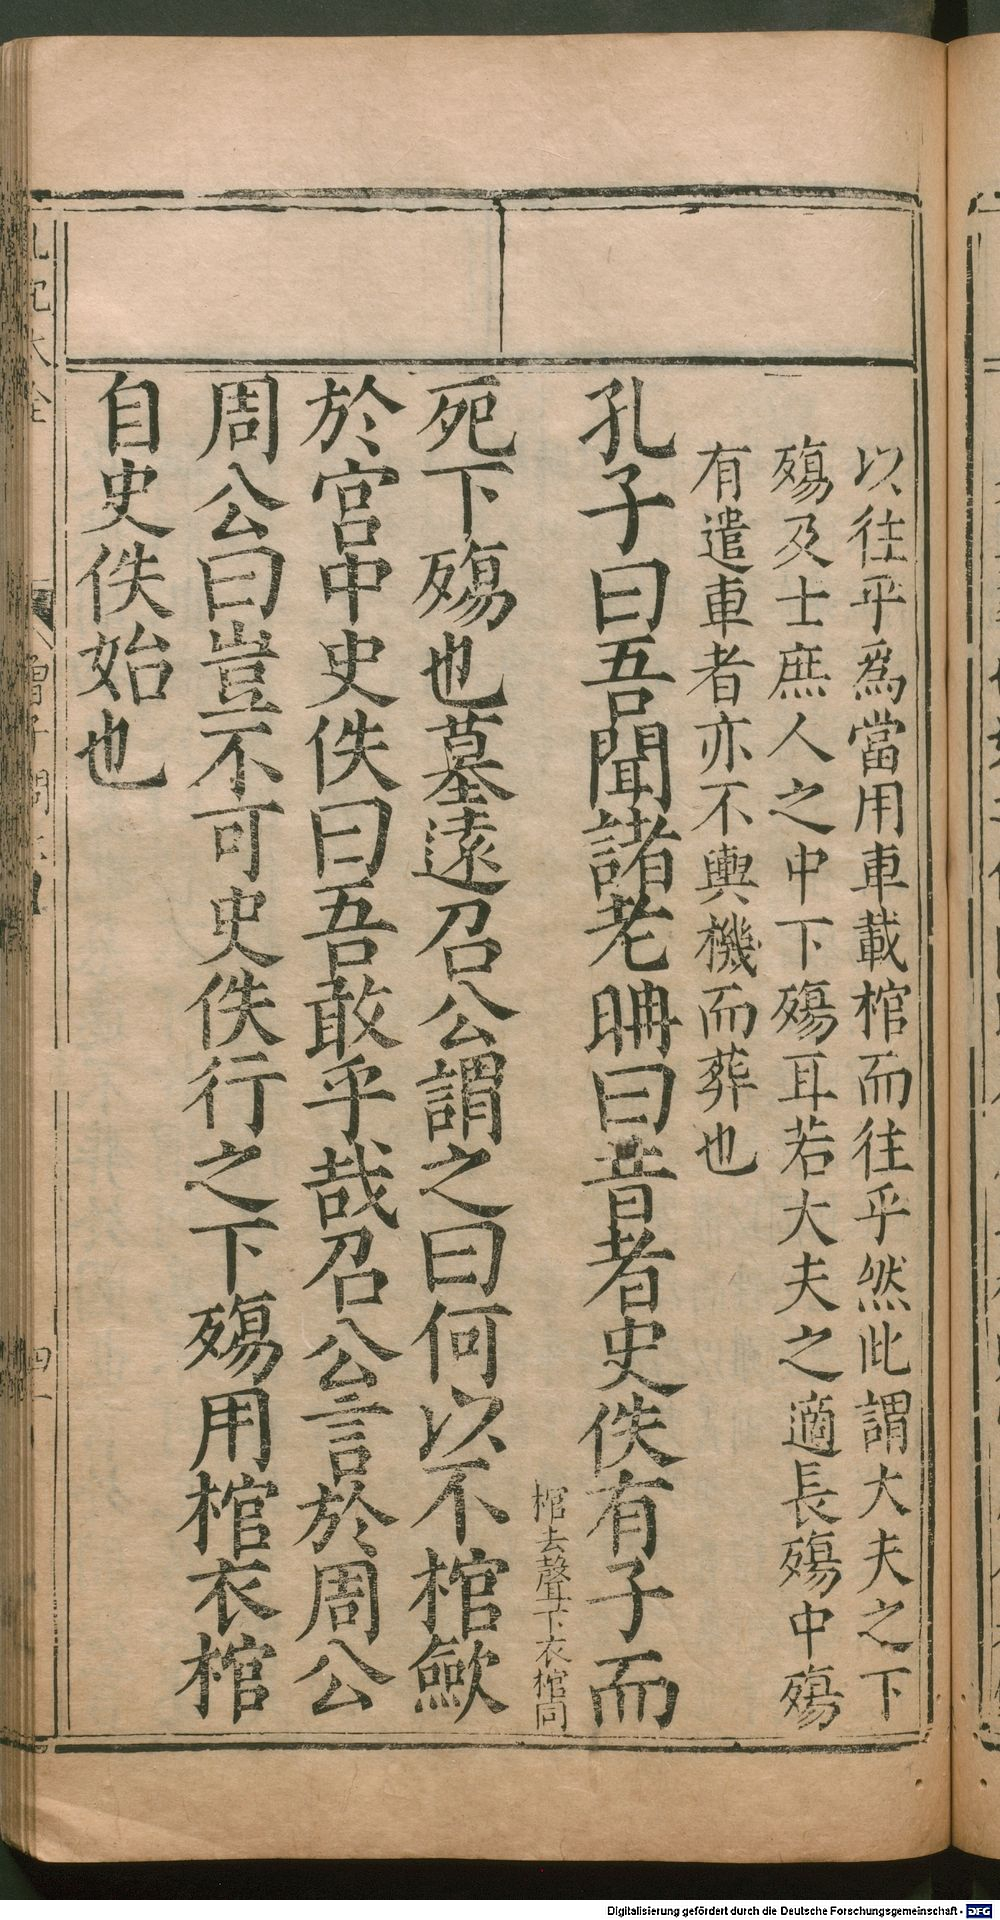 以往乎爲當用車載棺而往乎然此謂大夫之下
殤及士庶人之中下殤耳若大夫之適長殤中殤
有遣車者亦不輿機而葬也
孔子曰吾聞諸老聃曰昔者史佚有子而
棺去聲下衣棺同
死下殤也墓遠召公謂之曰何以不棺歛
於宫中史佚曰吾敢乎哉召公言於周公
周公曰豈不可史佚行之下殤用棺衣棺
自史佚始也
Digitalisierung gefördert durch die Deutsche Forschungsgemeinschaft - DFG